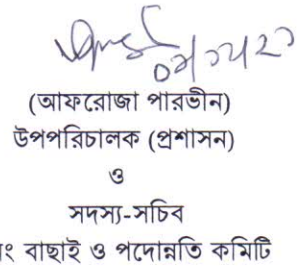 (আফরোজা পারভীন)
উপপরিচালক (প্রশাসন)
ও
সদস্য-সচিব
বাছাই ও পদোন্নতি কমিটি